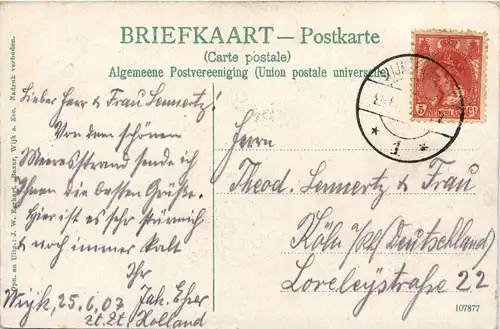 BRIEFKAART — Postkarte
(Carte postale)
Algemeene Postvereeniging (Union postale universelle)
Lieber Herr & Frau Lennertz!
Von dem schönen
Meeresstrand sende ich
Ihnen die besten Grüße.
Hier ist es sehr stürmisch
& noch immer kalt
Ihr
Jak. Esser
Wijk, 25.6.07
zt. Zt. Holland
Herrn
Theod. Lennertz & Frau
Köln a/R (Deutschland)
Loreleystraße 22
107877
Uitg.: J. W. Bazar, Wijk a. Zee. Nadruk verboden.
5
NEDERLAND
1